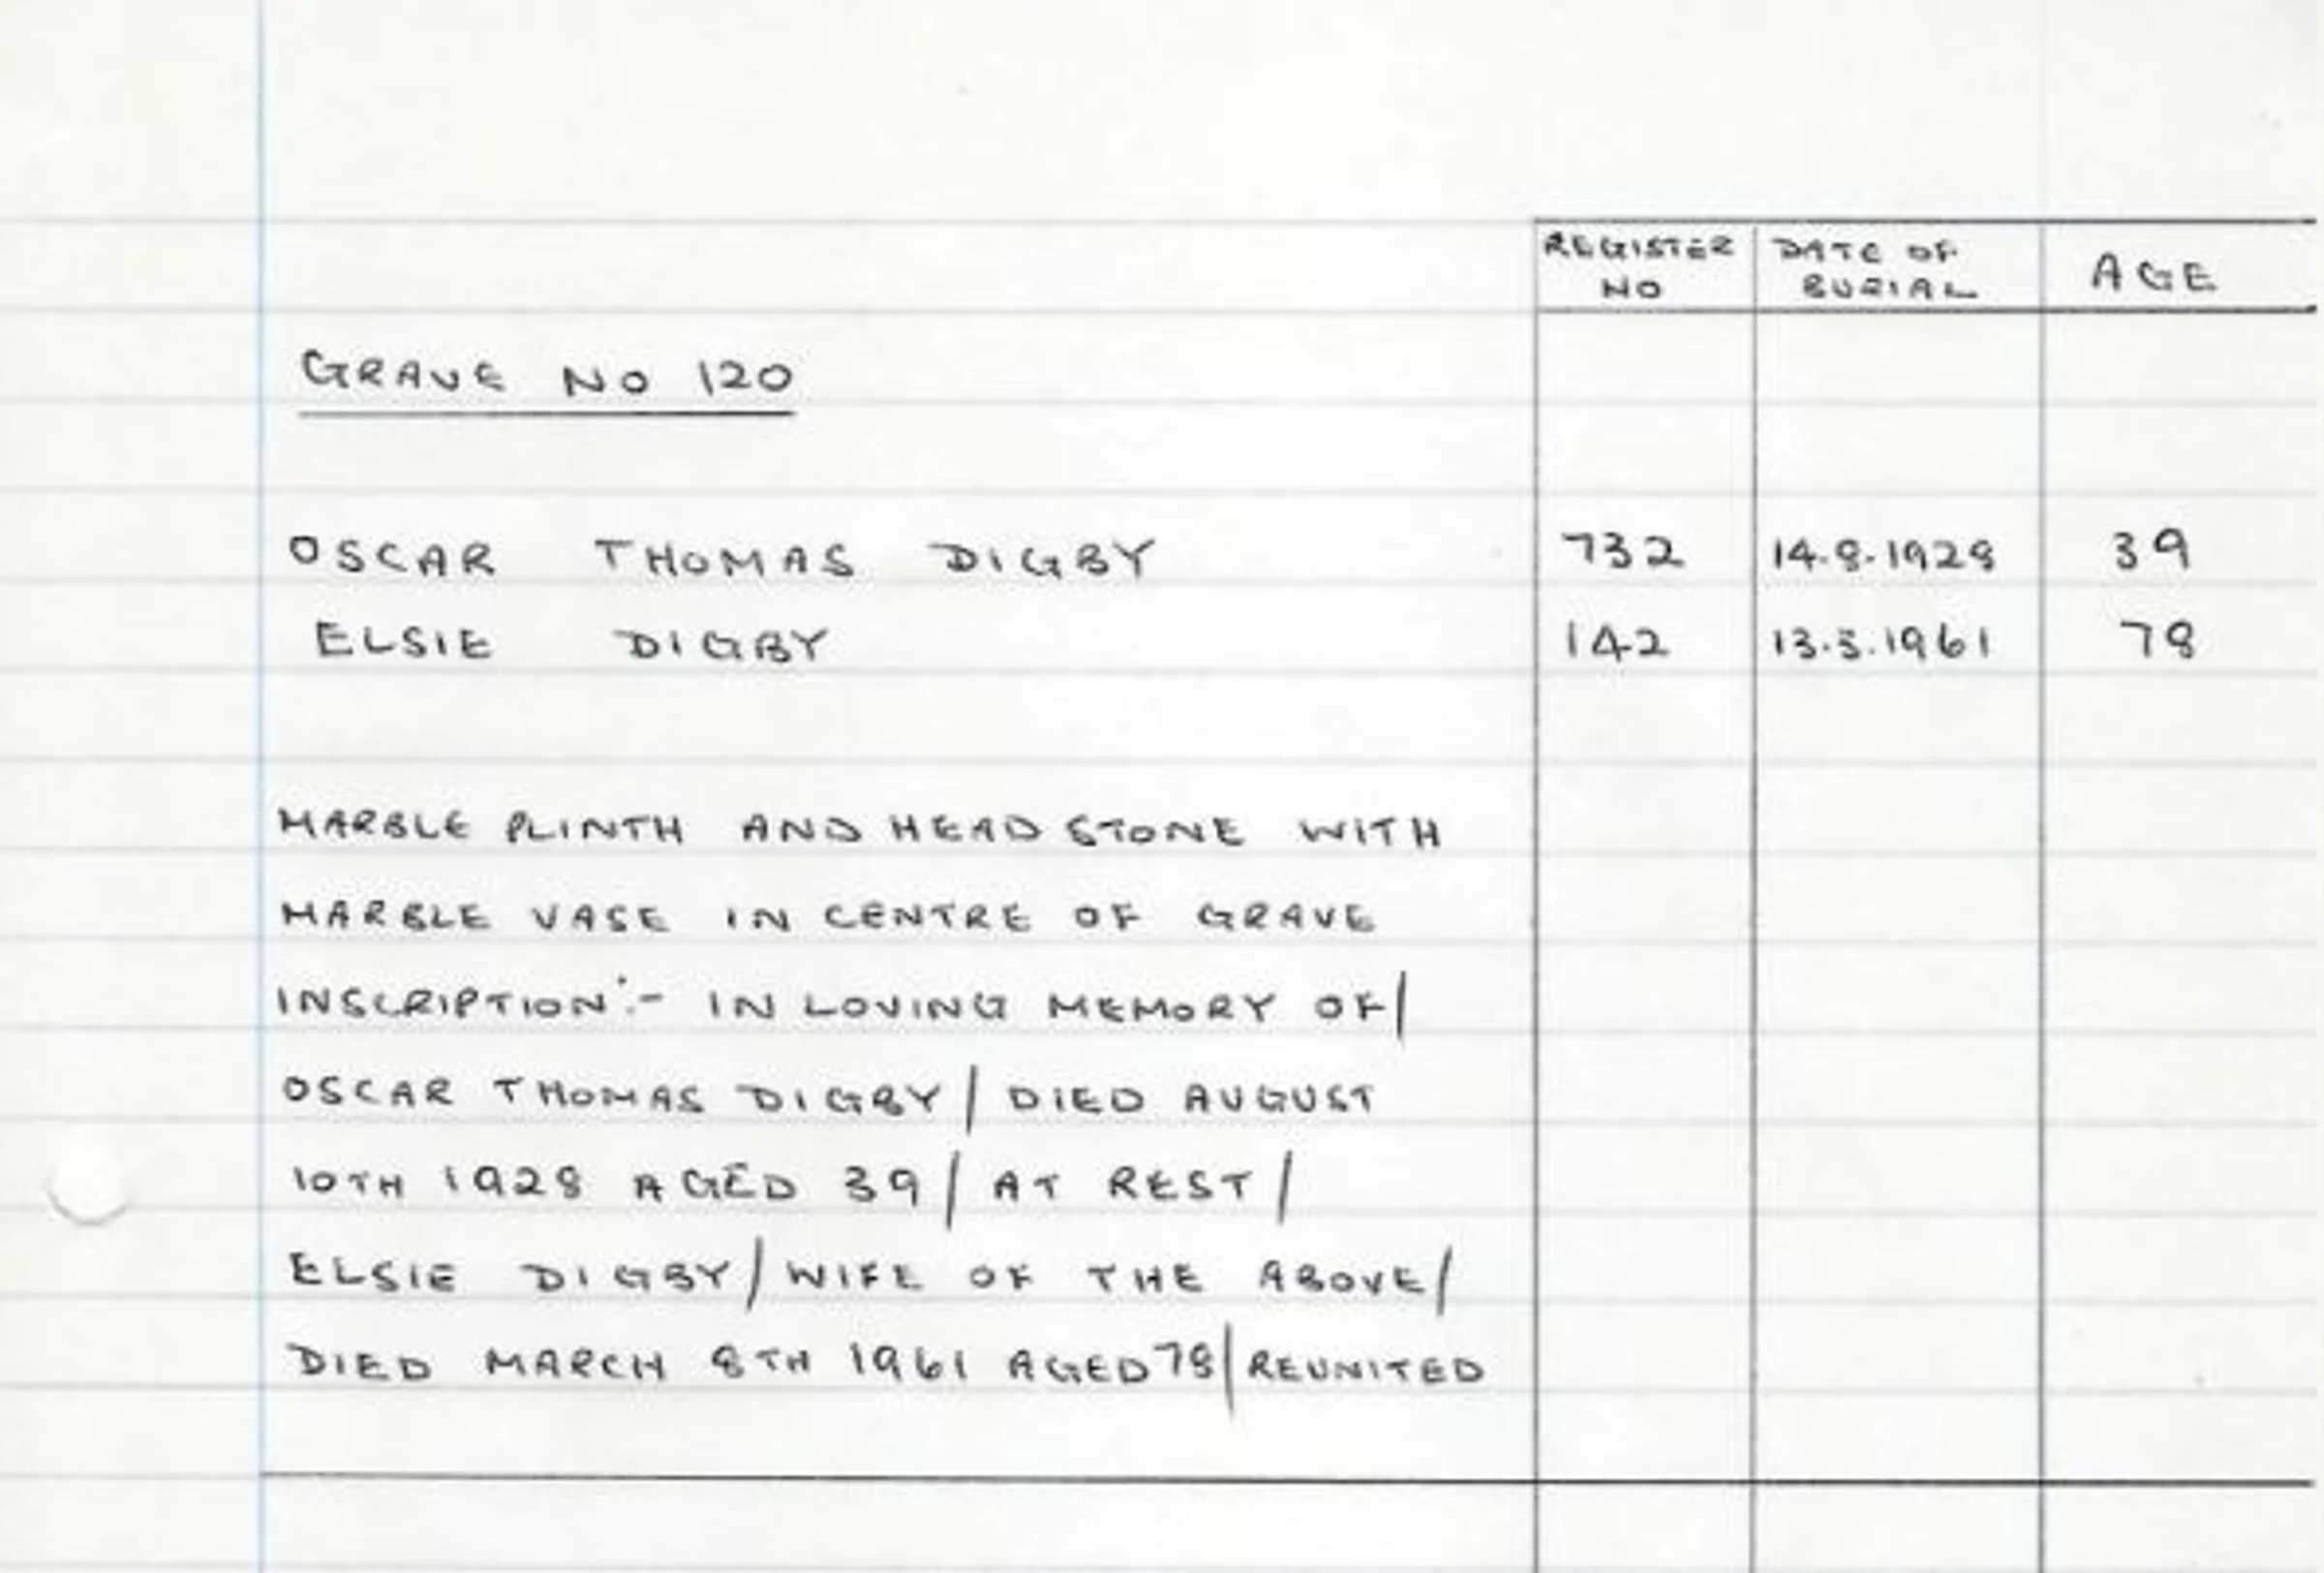 REGISTER NO
DATE OF BURIAL
AGE
GRAVE NO 120
OSCAR THOMAS DIGBY 732 14.8.1928 39
ELSIE DIGBY 142 13.3.1961 78
MARBLE PLINTH AND HEAD STONE WITH
MARBLE VASE IN CENTRE OF GRAVE
INSCRIPTION:- IN LOVING MEMORY OF/
OSCAR THOMAS DIGBY/ DIED AUGUST
10TH 1928 AGED 39/ AT REST/
ELSIE DIGBY/ WIFE OF THE ABOVE/
DIED MARCH 8TH 1961 AGED 78/ REUNITED